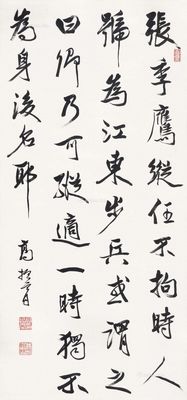 張季鷹縱任不拘時人
號為江東步兵或謂之
曰卿乃可縱適一時獨不
為身後名耶
高振霄